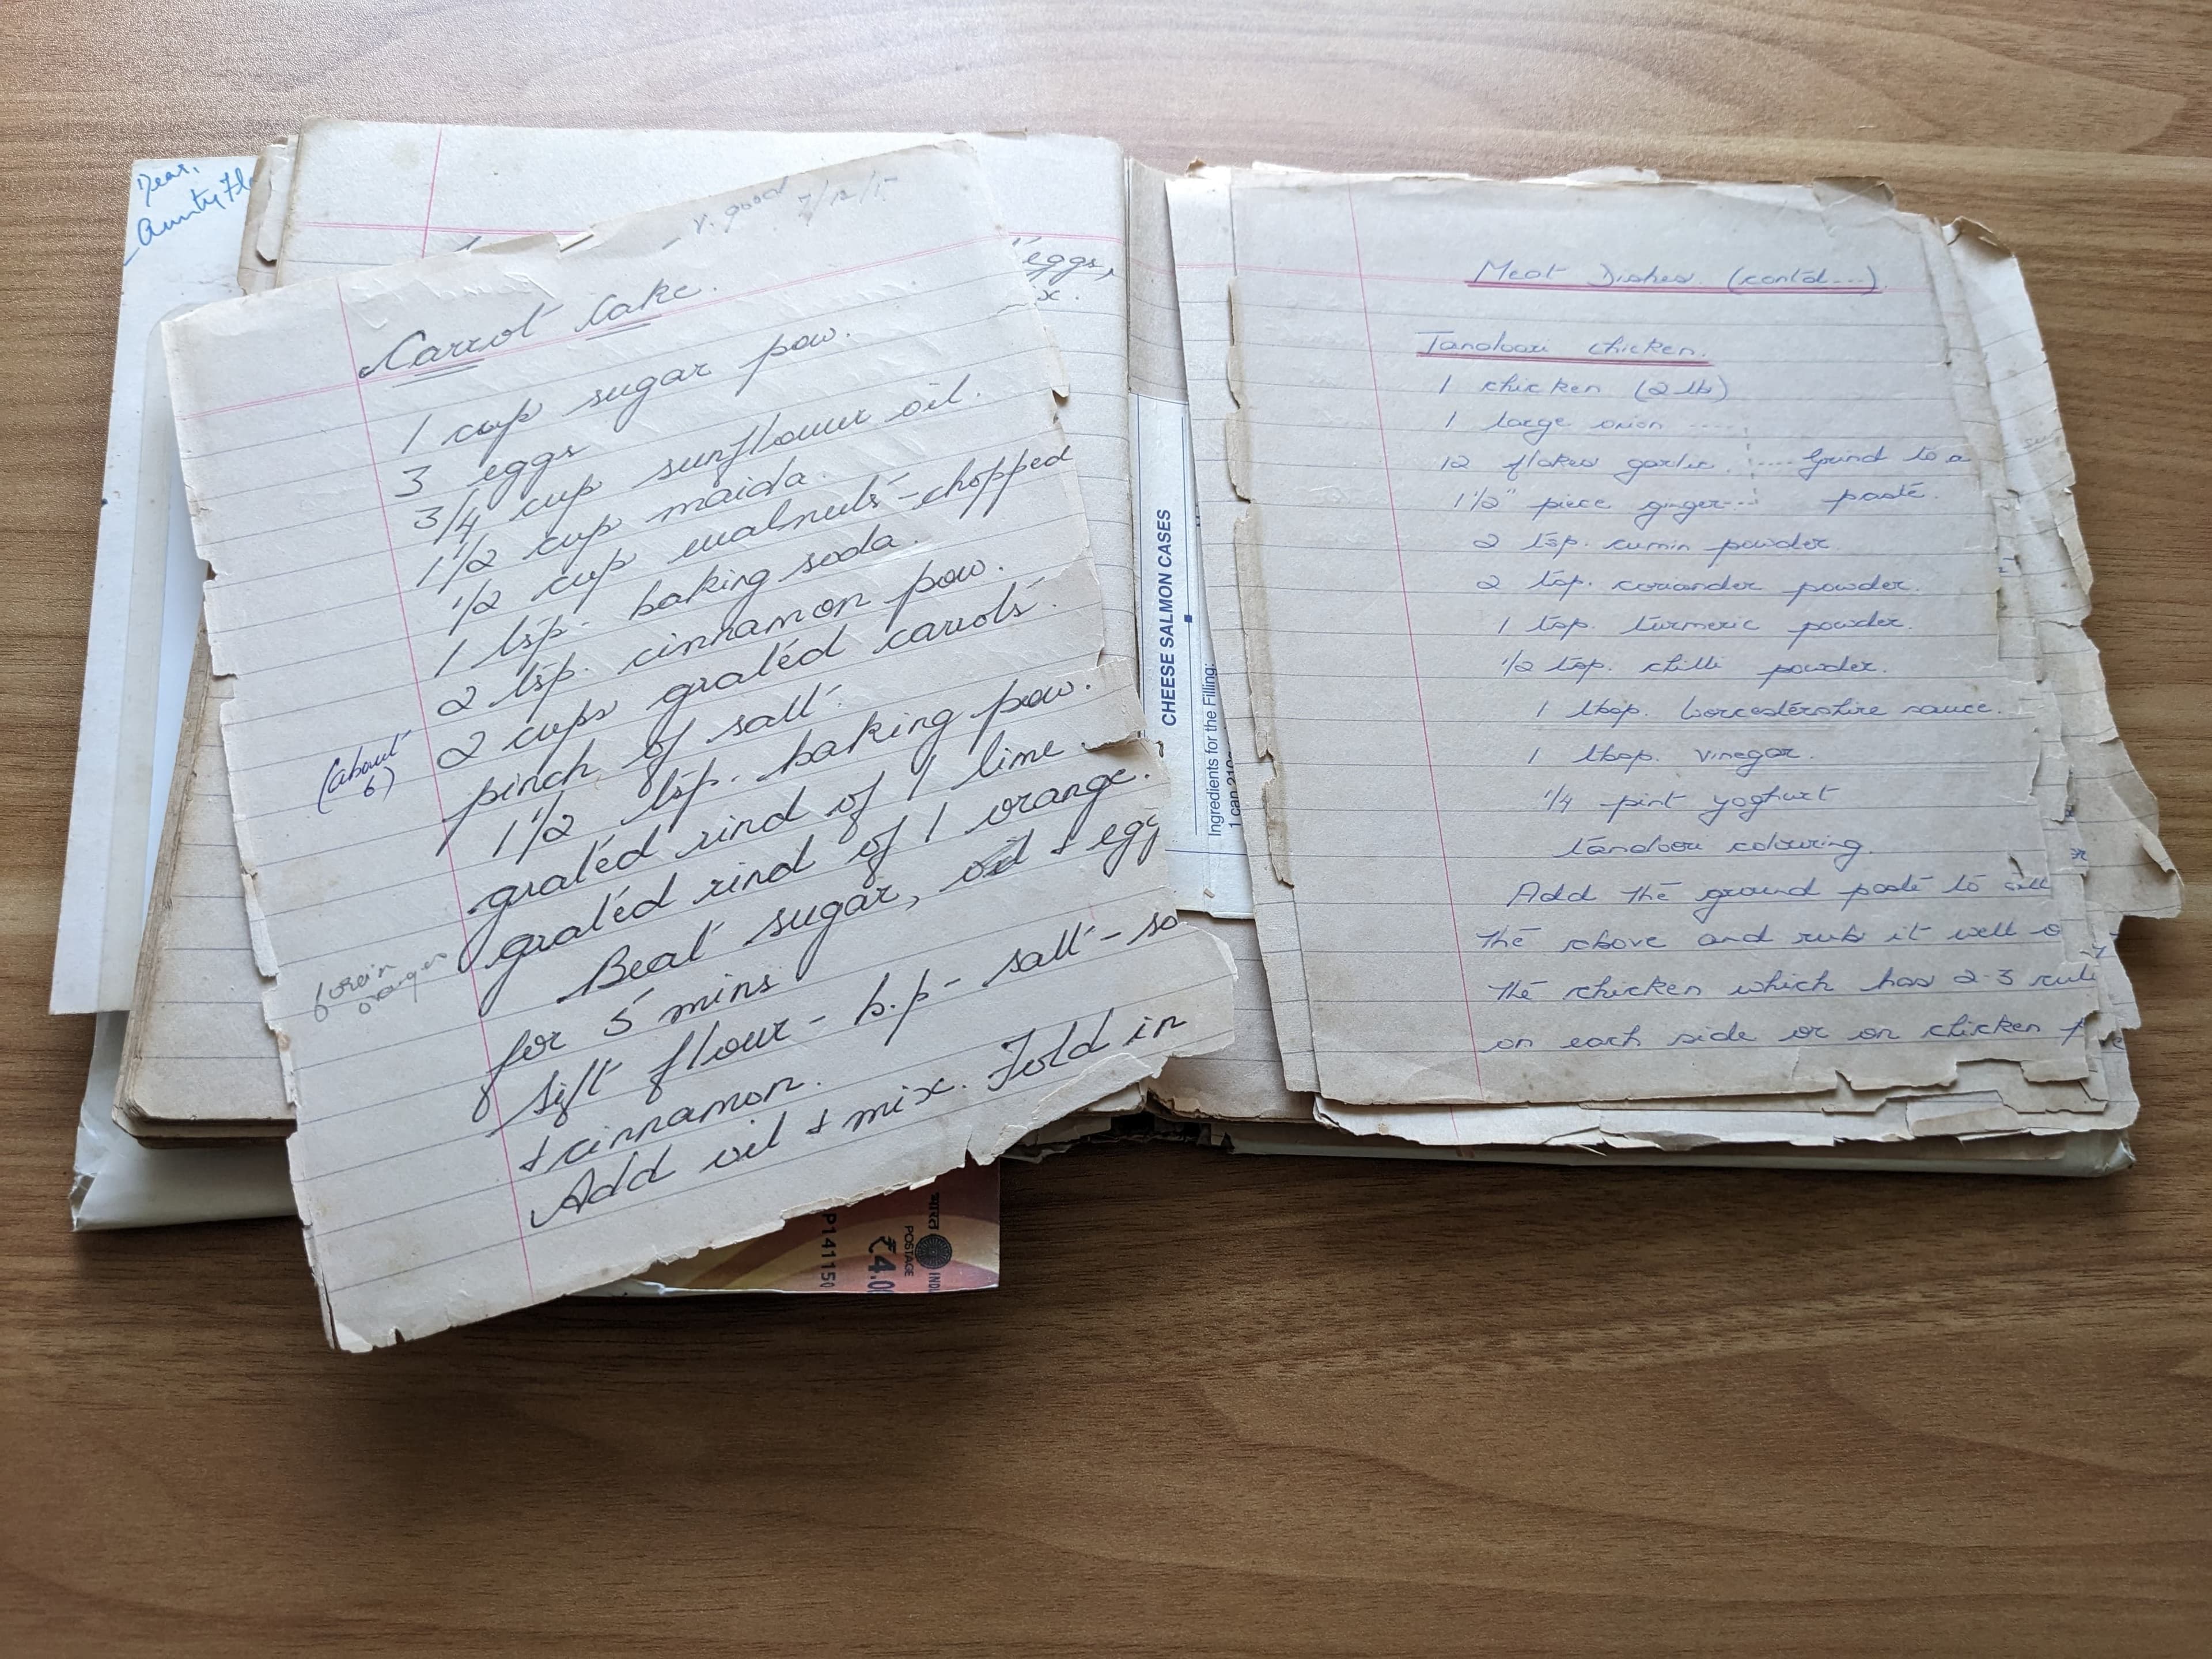 Dear,
Aunty Flo
v. good 7/12/15
eggs,
x.
Carrot Cake.
1 cup sugar pow.
3 eggs
3/4 cup sunflower oil.
1 1/2 cup maida.
1/2 cup walnuts - chopped
1 tsp. baking soda.
2 tsp. cinnamon pow.
2 cups grated carrots.
(about
6)
pinch of salt.
1 1/2 tsp. baking pow.
grated rind of 1 lime
grated rind of 1 orange.
oranges
Beat sugar, oil + egg
for 5 mins
sift flour - b.p - salt - so
+ cinnamon.
Add oil + mix. Fold in
P141150
भारत
INDI
POSTAGE
₹4.00
CHEESE SALMON CASES
Ingredients for the Filling:
1 can 210g
Meat Dishes. (contd....).
Tandoori chicken.
1 chicken (2 lb)
1 large onion .....
12 flakes garlic. ..... Grind to a
1 1/2" piece ginger.... paste.
2 tsp. cumin powder.
2 tsp. coriander powder.
1 tsp. turmeric powder.
1/2 tsp. chilli powder.
1 tbsp. Worcestershire sauce.
1 tbsp. vinegar.
1/4 pint yoghurt
tandoori colouring.
Add the ground paste to all
the above and rub it well o
the chicken which has 2-3 cuts
on each side or on chicken p